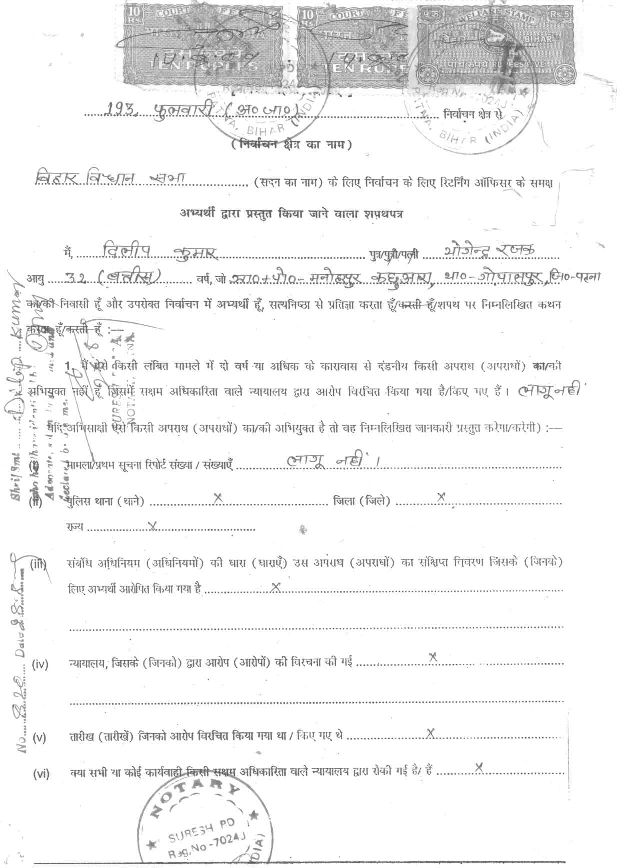 10 RS COURT FEE
TEN RUPEES
10 RS COURT FEE
TEN RUPEES
WELFARE STAMP RS. 5
BIHAR
193, फुलवारी (अ० जा०) निर्वाचन क्षेत्र से
(निर्वाचन क्षेत्र का नाम)
बिहार विधान सभा (सदन का नाम) के लिए निर्वाचन के लिए रिटर्निंग ऑफिसर के समक्ष
अभ्यर्थी द्वारा प्रस्तुत किया जाने वाला शपथपत्र
मैं, दिलीप कुमार पुत्र/पुत्री/पत्नी भोगेन्द्र रजक
आयु 32 (बत्तीस) वर्ष, जो ग्रा०+पो०- मनोहरपुर कछुआरा, था०- गोपालपुर, जि०- पटना
का/की निवासी हूँ और उपरोक्त निर्वाचन में अभ्यर्थी हूँ, सत्यनिष्ठा से प्रतिज्ञा करता हूँ/करती हूँ/शपथ पर निम्नलिखित कथन
करता हूँ/करती हूँ :—
1. मैं ऐसे किसी लंबित मामले में दो वर्ष या अधिक के कारावास से दंडनीय किसी अपराध (अपराधों) का/की
अभियुक्त नहीं हूँ जिसमें सक्षम अधिकारिता वाले न्यायालय द्वारा आरोप विरचित किया गया है/किए गए हैं। लागू नहीं
यदि अभिसाक्षी ऐसे किसी अपराध (अपराधों) का/की अभियुक्त है तो वह निम्नलिखित जानकारी प्रस्तुत करेगा/करेगी) :—
(i) मामला/प्रथम सूचना रिपोर्ट संख्या / संख्याएँ लागू नहीं।
(ii) पुलिस थाना (थाने) x जिला (जिले) x
राज्य x
(iii) संबंधि अधिनियम (अधिनियमों) की धारा (धाराएँ) उस अपराध (अपराधों) का संक्षिप्त विवरण जिसके (जिनके)
लिए अभ्यर्थी आरोपित किया गया है x
(iv) न्यायालय, जिसके (जिनके) द्वारा आरोप (आरोपों) की विरचना की गई x
(v) तारीख (तारीखें) जिनको आरोप विरचित किया गया था / किए गए थे x
(vi) क्या सभी या कोई कार्यवाही किसी सक्षम अधिकारिता वाले न्यायालय द्वारा रोकी गई है/ हैं x
NOTARY
SURESH PD
Reg.No-7024
(INDIA)
PATNA, BIHAR (INDIA)
Reg.No-7024
PATNA, BIHAR (INDIA)
Shri/Smt Dilip Kumar
declared before me
No. Date